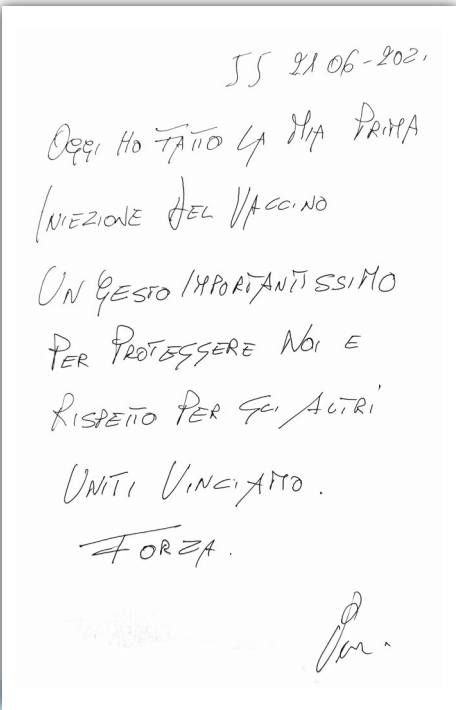 SS 21 06-2021
OGGI HO FATTO LA MIA PRIMA
INIEZIONE DEL VACCINO
UN GESTO IMPORTANTISSIMO
PER PROTEGGERE NOI E
RISPETTO PER GLI ALTRI
UNITI VINCIAMO.
FORZA.